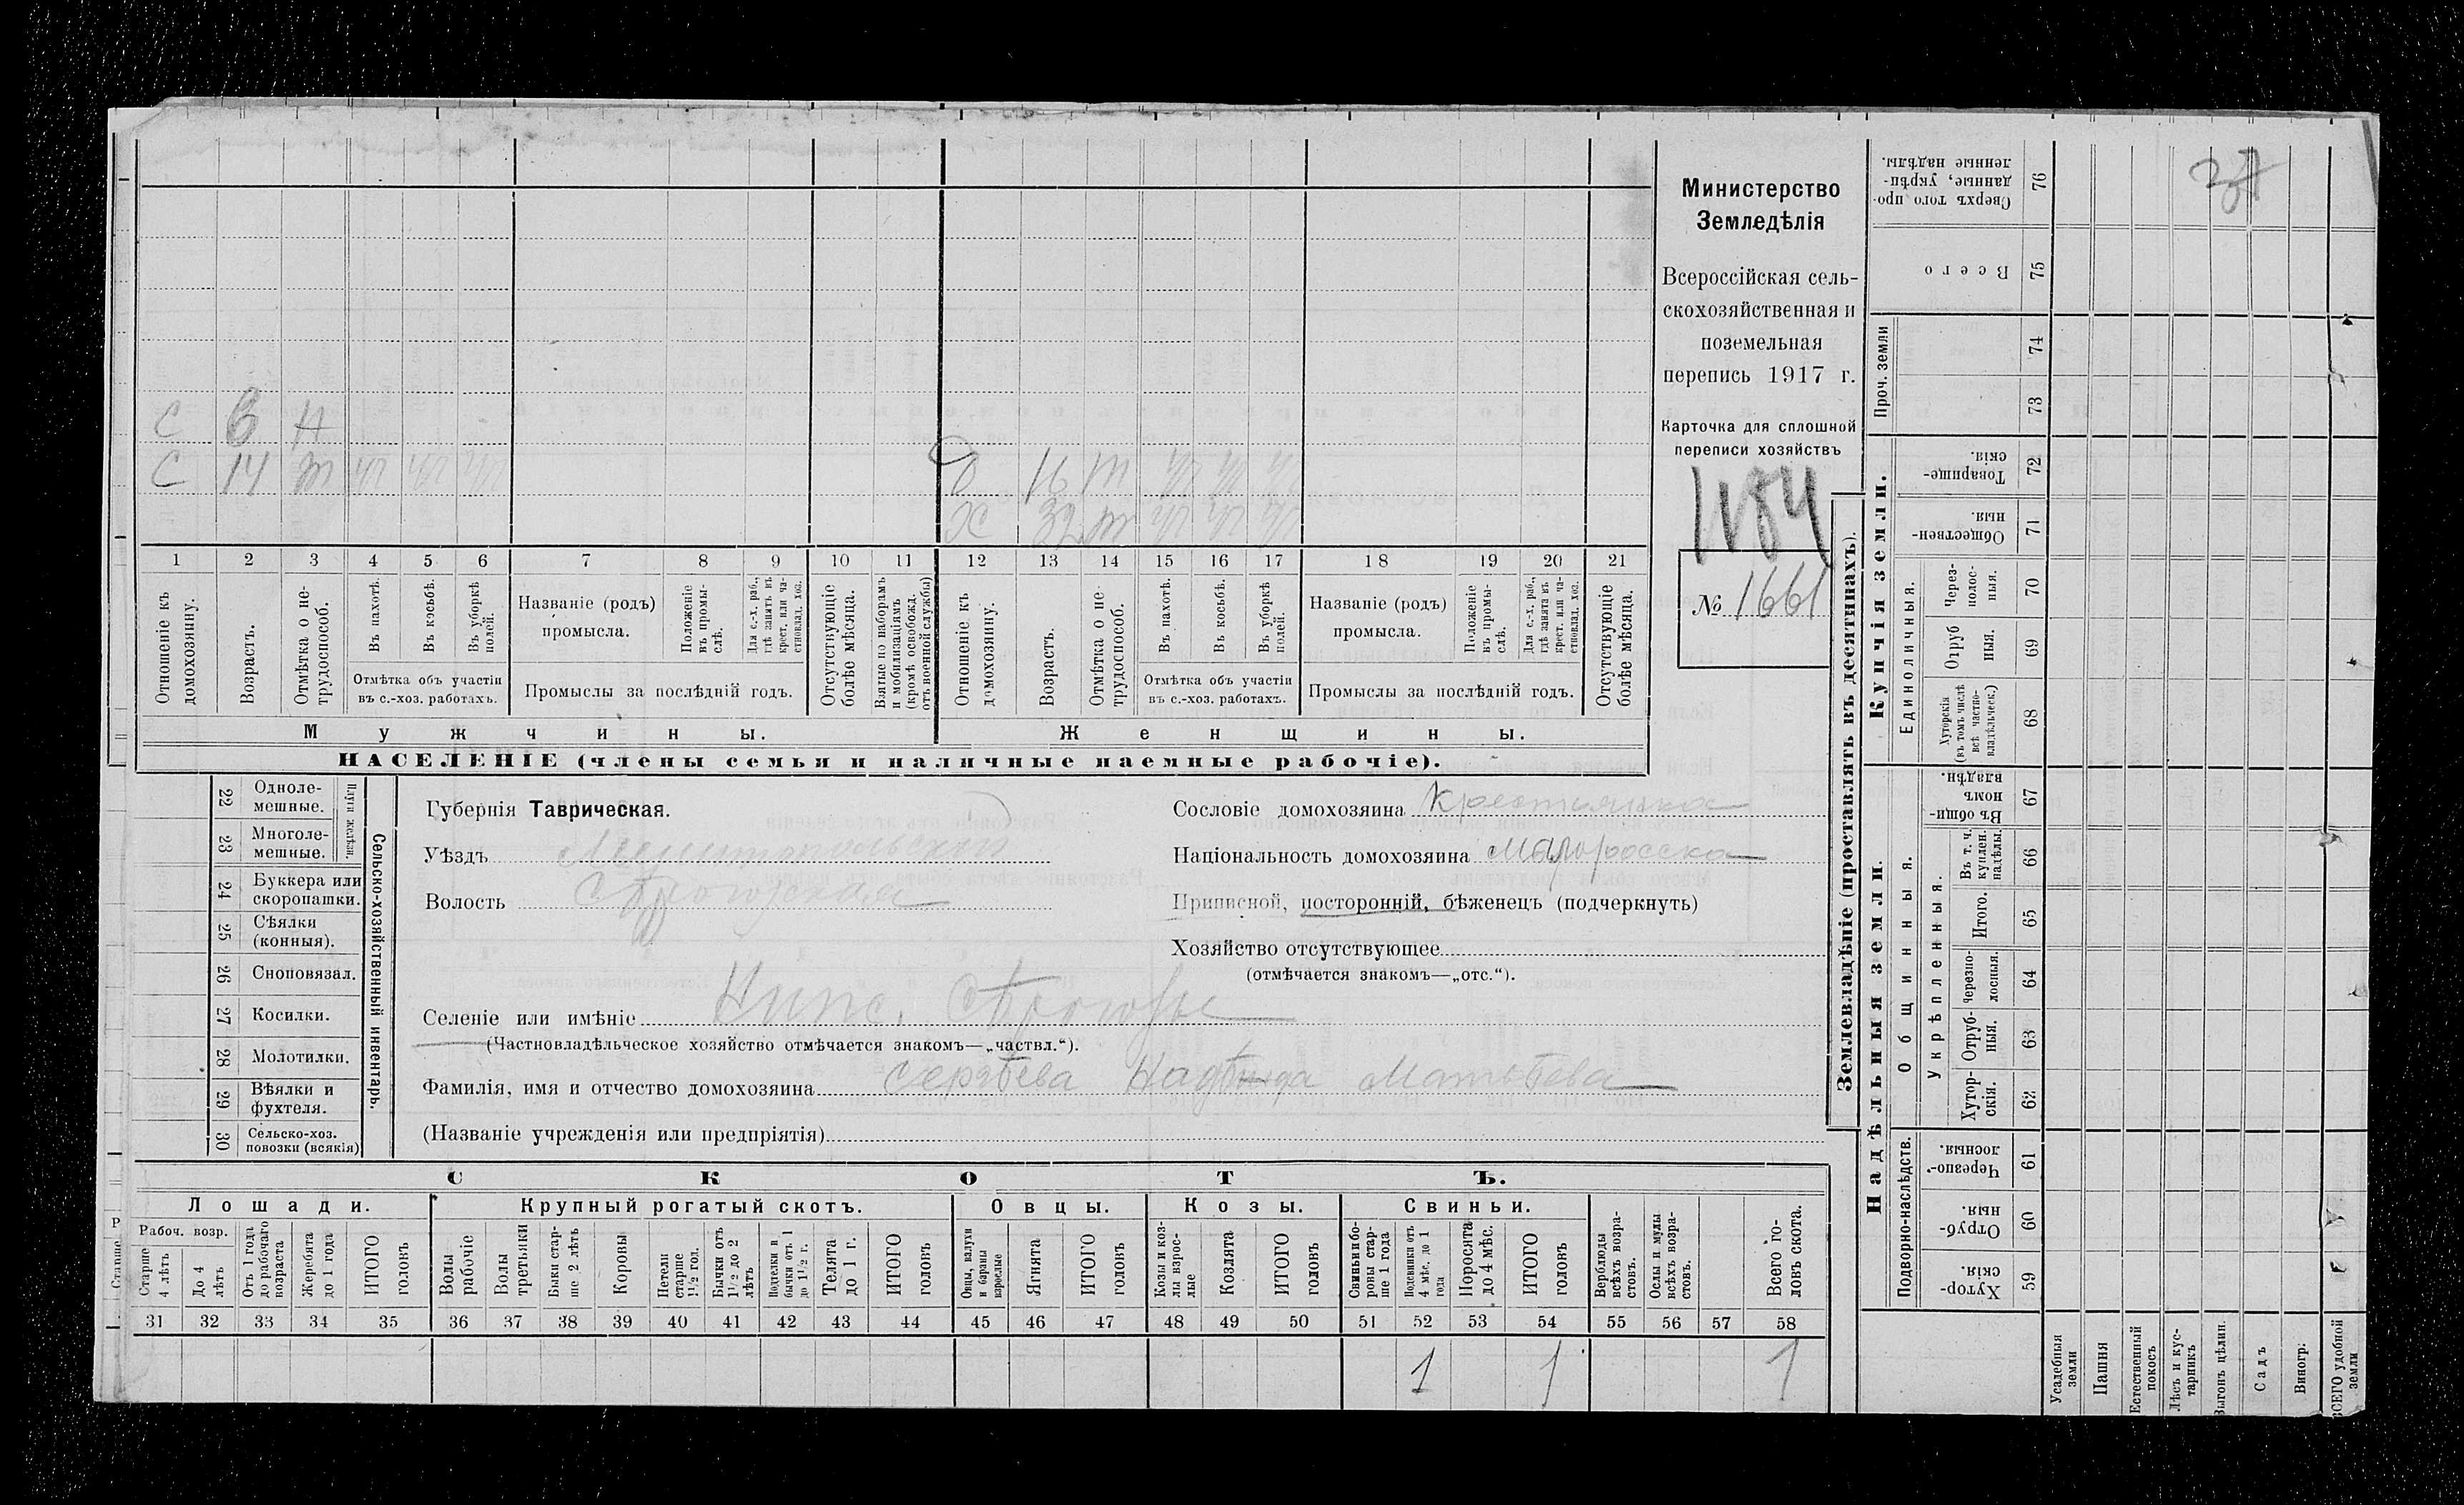 С 6 Н
С 14 т
Д 16 т
Х
1 2 3 4 5 6 7 8 9 10 11 12 13 14 15 16 17 18 19 20 21
Отношеніе къ домохозяину.
Возрастъ.
Отмѣтка о не-
трудоспособ.
Въ пахотѣ.
Въ косьбѣ.
Въ уборкѣ полей.
Отмѣтка объ участіи
въ с.-хоз. работахъ.
Названіе (родъ)
промысла.
Положеніе въ промы-
слѣ.
Для с.-х. раб., гдѣ занятъ въ крест. или ча-
стновлад. хоз.
Промыслы за послѣдній годъ.
Отсутствующіе болѣе мѣсяца.
Взятые по наборамъ и мобилизаціямъ (кромѣ освобожд. отъ военной службы)
Отношеніе къ домохозяину.
Возрастъ.
Отмѣтка о не-
трудоспособ.
Въ пахотѣ.
Въ косьбѣ.
Въ уборкѣ полей.
Отмѣтка объ участіи
въ с.-хоз. работахъ.
Названіе (родъ)
промысла.
Положеніе въ промы-
слѣ.
Для с.-х. раб., гдѣ занята въ крест. или ча-
стновлад. хоз.
Промыслы за послѣдній годъ.
Отсутствующіе болѣе мѣсяца.
Мужчины.
Женщины.
НАСЕЛЕНІЕ (члены семьи и наличные наемные рабочіе).
Министерство
Земледѣлія
Всероссійская сель-
скохозяйственная и
поземельная
перепись 1917 г.
Карточка для сплошной
переписи хозяйствъ
1184
№ 1661
22 Одноле-
мешные.
23 Многоле-
мешные.
Плуги желѣзн.
24 Буккера или
скоропашки.
25 Сѣялки
(конныя).
26 Сноповязал.
27 Косилки.
28 Молотилки.
29 Вѣялки и
фухтеля.
30 Сельско-хоз.
повозки (всякія)
Сельско-хозяйственный инвентарь.
Губернія Таврическая.
Уѣздъ Мелитопольскій
Волость Сѣрогозская
Селеніе или имѣніе Нипс. Сѣрогозы
(Частновладѣльческое хозяйство отмѣчается знакомъ—„частвл.“).
Фамилія, имя и отчество домохозяина Сергѣева Надѣжда Матвѣева
(Названіе учрежденія или предпріятія)
Сословіе домохозяина крестьянка
Національность домохозяина Малоросска
Приписной, посторонній, бѣженецъ (подчеркнуть)
Хозяйство отсутствующее
(отмѣчается знакомъ—„отс.“).
СКОТЪ.
Лошади. Крупный рогатый скотъ. Овцы. Козы. Свиньи.
Рабоч. возр.
Старше 4 лѣтъ
До 4 лѣтъ
Отъ 1 года до рабочаго возраста
Жеребята до 1 года
ИТОГО головъ
Волы рабочіе
Волы третьяки
Быки стар-
ше 2 лѣтъ
Коровы
Нетели старше 1½ год.
Бычки отъ 1½ до 2 лѣтъ
Подтелки и бычки отъ 1 до 1½ г.
Телята до 1 г.
ИТОГО головъ
Овцы, валухи и бараны взрослые
Ягнята
ИТОГО головъ
Козы и коз-
лы взрос-
лые
Козлята
ИТОГО головъ
Свиньи и бо-
ровы стар-
ше 1 года
Подсвинки отъ 4 мѣс. до 1 года
Поросята до 4 мѣс.
ИТОГО головъ
Верблюды всѣхъ возра-
стовъ.
Ослы и мулы всѣхъ возра-
стовъ.
Всего го-
ловъ скота.
31 32 33 34 35 36 37 38 39 40 41 42 43 44 45 46 47 48 49 50 51 52 53 54 55 56 57 58
1 1 1
Землевладѣніе (проставлять въ десятинахъ).
Купчія земли.
Надѣльныя земли.
Проч. земли
Единоличныя.
Общинныя.
Укрѣпленныя.
Подворно-наслѣдств.
Сверхъ того про-
данные, укрѣп-
ленные надѣлы. 76
Всего 75
74
73
Товарище-
скія. 72
Обществен-
ныя. 71
Черезполос-
ныя. 70
Отруб
ныя. 69
Хуторскія (въ томъ числѣ всѣ частно-
владѣльческ.) 68
Въ общи-
номъ владѣн. 67
Въ т. ч. куплен. надѣлы. 66
Итого. 65
Черезпо-
лосныя. 64
Отруб-
ныя. 63
Хутор-
скія. 62
Черезпо-
лосныя. 61
Отруб-
ныя. 60
Хутор-
скія. 59
Усадебныя земли
Пашня
Естественный покосъ
Лѣсъ и кус-
тарникъ
Выгонъ цѣлин.
Садъ
Виногр:
ВСЕГО удобной земли